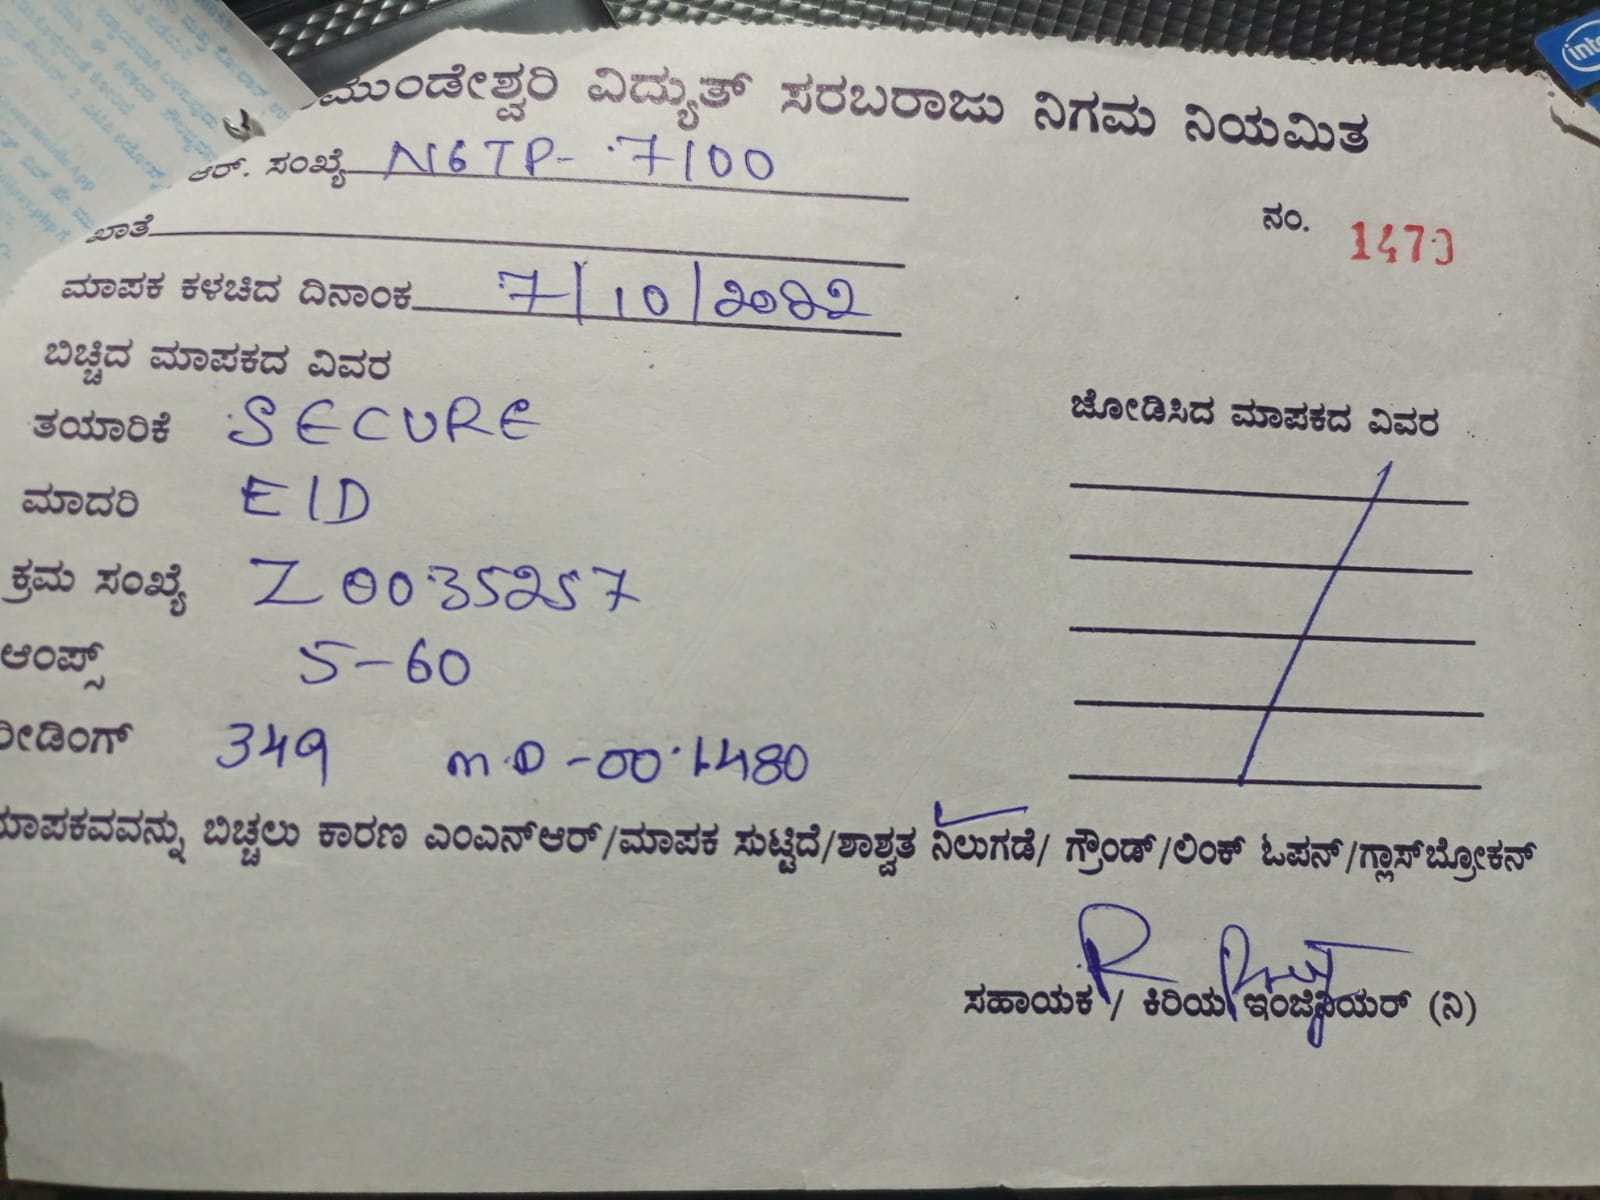 ಮುಂಡೇಶ್ವರಿ ವಿದ್ಯುತ್ ಸರಬರಾಜು ನಿಗಮ ನಿಯಮಿತ
ಆರ್. ಸಂಖ್ಯೆ N6TP- 7100
ನಂ. 1470
ಖಾತೆ
ಮಾಪಕ ಕಳಚಿದ ದಿನಾಂಕ 7/10/2022
ಬಿಚ್ಚಿದ ಮಾಪಕದ ವಿವರ
ಜೋಡಿಸಿದ ಮಾಪಕದ ವಿವರ
ತಯಾರಿಕೆ SECURE
ಮಾದರಿ EID
ಕ್ರಮ ಸಂಖ್ಯೆ Z0035257
ಆಂಪ್ಸ್ 5-60
ರೀಡಿಂಗ್ 349 m.D-00.1480
ಮಾಪಕವವನ್ನು ಬಿಚ್ಚಲು ಕಾರಣ ಎಂಎನ್ಆರ್/ಮಾಪಕ ಸುಟ್ಟಿದೆ/ಶಾಶ್ವತ ನಿಲುಗಡೆ/ ಗ್ರೌಂಡ್/ಲಿಂಕ್ ಓಪನ್/ಗ್ಲಾಸ್‌ಬ್ರೋಕನ್
ಸಹಾಯಕ / ಕಿರಿಯ ಇಂಜಿನಿಯರ್ (ನಿ)